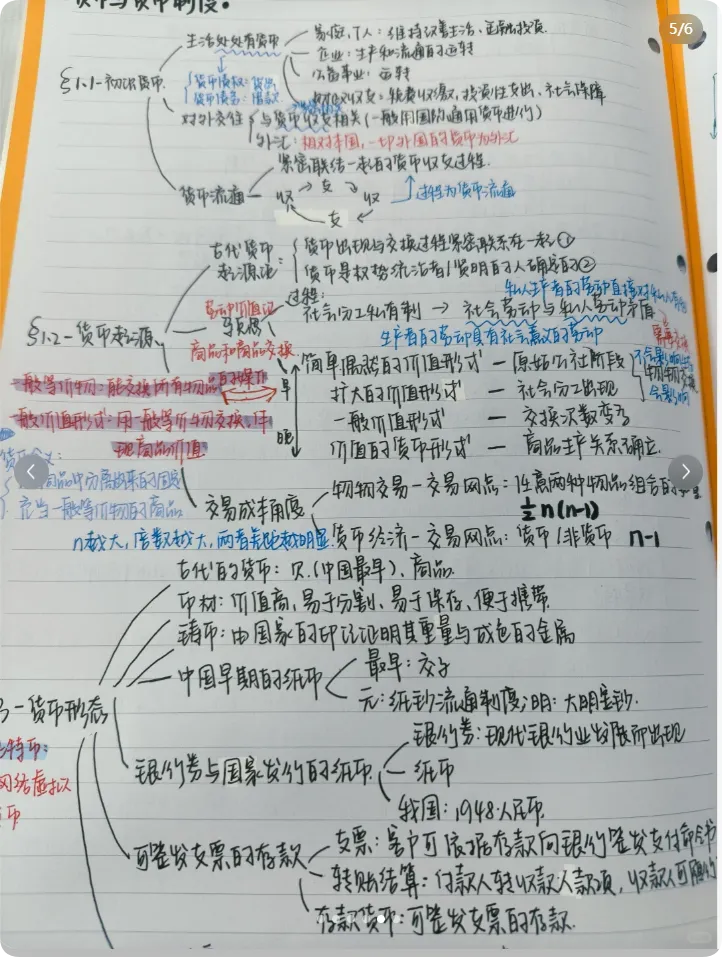 货币与货币制度。
5/6
生活处处有货币
易恢,T人:维持改善生活、金融投资.
企业:生产和流通的运转
§1.1-初识货币.
货币债权:贷出
货币债务:借款
运转
财政收支:税费收缴,投资性支出、社会保障
对外交往
与货币收支相关(一般用国际通用货币进行)
外汇:相对本国,一切外国的货币为外汇
紧密联结一起的货币收支过程.
货币流通
收 → 支 收
支
过程为货币流通
古代货币起源论:
货币出现与交换过程紧密联系在一起①
货币是权势统治者/贤明的人确定的②
私人生产者的劳动直接对
过程:
劳动价值论
社会分工和私有制 → 社会劳动与私人劳动矛盾
§1.2-货币起源.
马克思
商品和商品交换
生产者的劳动具有社会意义的劳动
需要交换
一般等价物:能交换所有物品的媒介
早
简单偶然的价值形式 — 原始公社阶段
扩大的价值形式 — 社会分工出现
物物交换
一般价值形式:用一般等价物交换,体现商品价值
一般价值形式 — 交换次数变多
晚
价值的货币形式 — 商品生产关系确立.
商品中分离出来的固定
充当一般等价物的商品
交易成本角度
物物交易-交易网点:任意两种物品组合的
½n(n-1)
n越大,倍数越大,两者差距越明显.
货币经济-交易网点:货币/非货币 n-1
古代的货币:贝.(中国最早)、商品.
币材:价值高、易于分割、易于保存、便于携带.
铸币:由国家的印记证明其重量与成色的金属
中国早期的纸币
最早:交子
元:纸钞流通制度;明:大明宝钞.
-货币形态
特币:
网络虚拟
币
银行券与国家发行的纸币.
银行券:现代银行业发展而出现
纸币
我国:1948:人民币.
可签发支票的存款
支票:客户可依据存款向银行签发支付命令书
转账结算:付款人转收款人款项,收款人可随
存款货币:可签发支票的存款.